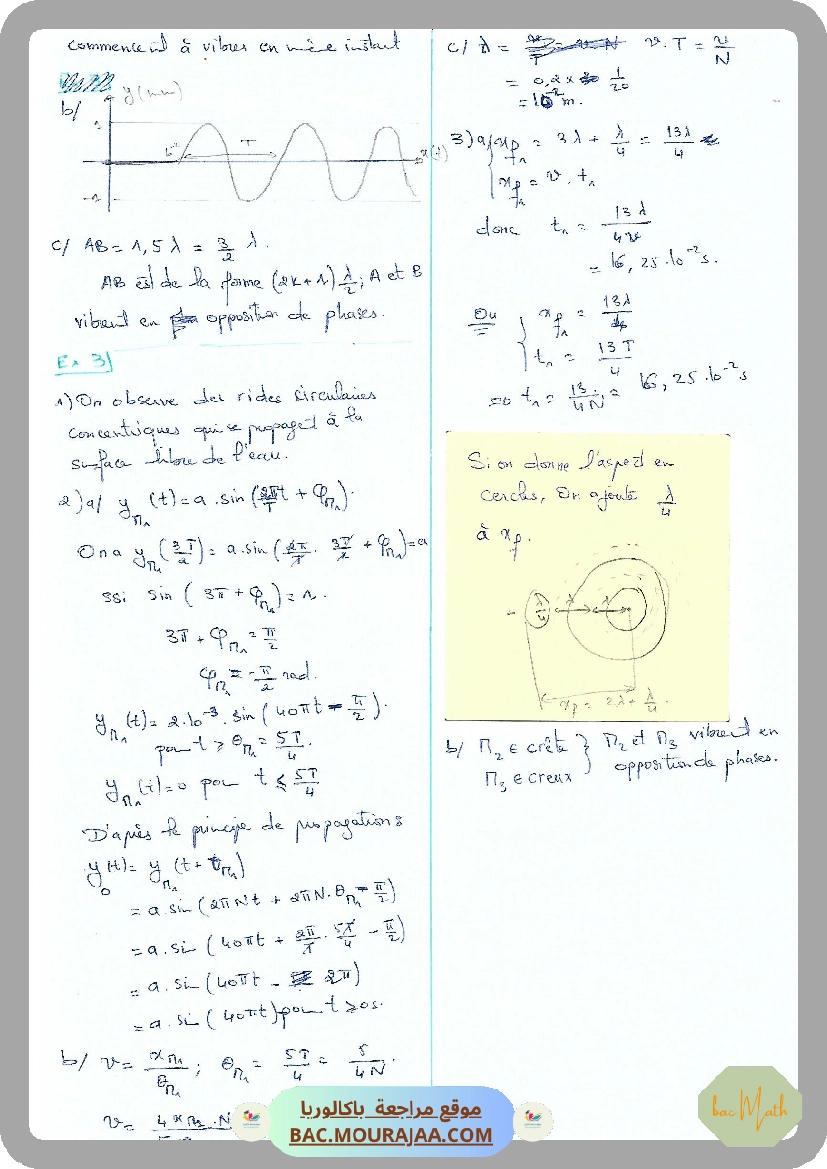 commencent à vibrer en même instant
b/
y(mm)
1
T
x(t)
-1
c/ AB = 1,5 λ = 3/2 λ.
AB est de la forme (2k+1) λ/2 ; A et B
vibrent en opposition de phases.
Ex 3)
1) On observe des rides circulaires
concentriques qui se propagent à la
surface libre de l'eau.
2) a/ y_M1 (t) = a . sin (2π/T t + φ_M1).
On a y_M1 (3T/2) = a . sin (2π/T . 3T/2 + φ_M1) = a
ssi sin ( 3π + φ_M1) = 1.
3π + φ_M1 = π/2
φ_M1 = - π/2 rad.
y_M1 (t) = 2.10^-3 . sin ( 40πt - π/2 ).
pour t ≥ θ_M1 = 5T/4.
y_M1 (t) = 0 pour t ≤ 5T/4
D'après le principe de propagation :
y_0 (t) = y_M1 (t + θ_M1)
= a . sin ( 2πNt + 2πN.θ_M1 - π/2 )
= a . sin ( 40πt + 2π/T . 5T/4 - π/2 )
= a . sin ( 40πt - 2π)
= a . sin ( 40πt) pour t ≥ 0s.
b/ v = x_M1/θ_M1 ; θ_M1 = 5T/4 = 5/4N .
c/ λ = v . T = v/N
= 0,2 × 1/20
= 10^-2 m.
3) a/ x_f1 = 3λ + λ/4 = 13λ/4
x_f1 = v . t_1
donc t_1 = 13λ/4v
= 16,25.10^-2 s.
Ou x_f1 = 13λ/4
t_1 = 13T/4
=> t_1 = 13/4N = 16,25.10^-2 s
Si on donne l'aspect en
cercles, On ajoute λ/4
à x_f.
λ/4 λ λ
x_f = 2λ + λ/4 .
b/ M_2 ∈ crête } M_2 et M_3 vibrent en
M_3 ∈ creux } opposition de phases.
موقع مراجعة باكالوريا
BAC.MOURAJAA.COM
bac Math